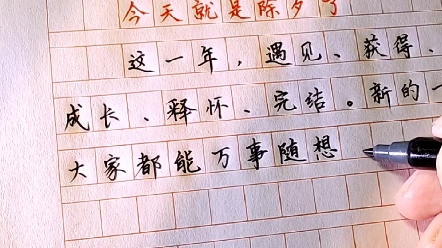 今天就是除夕了
这一年,遇见、获得、
成长、释怀、完结。新的一
大家都能万事随想